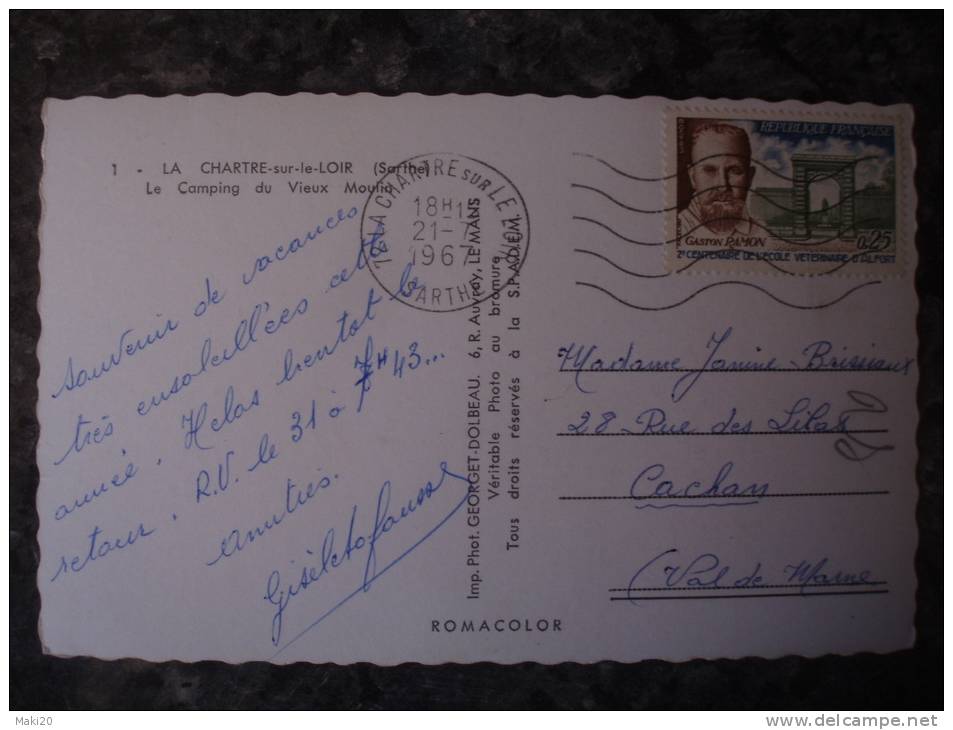 1 - LA CHARTRE-sur-le-LOIR (Sarthe)
Le Camping du Vieux Moulin
Souvenir de vacances
très ensoleillées cette
année. Helas bientot le
retour. R.V. le 31 à 7H 43...
Amitiés.
72 LA CHARTRE SUR LE LOIR
18H15
21-7
1967
SARTHE
REPUBLIQUE FRANÇAISE
GASTON RAMON
0,25
2e CENTENAIRE DE L'ECOLE VETERINAIRE D'ALFORT
Imp. Phot. GEORGET-DOLBEAU. 6, R. Auvray, LE MANS
Véritable Photo au bromure
Tous droits réservés à la S.P.A.D.E.M.
Madame Janine Brissiaux
28 Rue des Lilas
Cachan
(Val de Marne)
ROMACOLOR
Maki20
www.delcampe.net